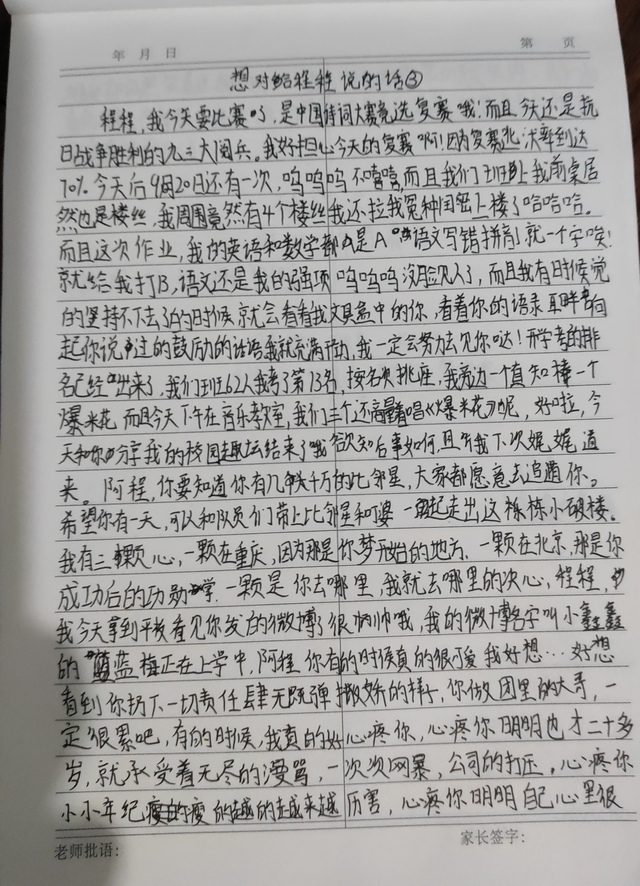 年 月 日 第 页
想对给程程说的话③
程程,我今天要比赛了,是中国诗词大赛竞选复赛哦!而且今天还是抗
日战争胜利的九三大阅兵。我好担心今天的复赛啊!因为复赛淘汰率到达
70%今天后9月20日还有一次,呜呜呜不嘻嘻,而且我们班上我前桌居
然也是楼丝,我周围竟然有4个楼丝我还拉我冤种闺密上楼了哈哈哈。
而且这次作业,我的英语和数学都是A 语文写错拼音就一个字唉!
就给我打B,语文还是我的强项 呜呜呜没脸见人了,而且我有时候觉
的坚持不下去了的时候就会看看我文具盒中的你,看着你的语录耳畔响
起你说过的鼓励的话语我就充满动力,我一定会努力去见你哒!开学考的排
名已经出来了,我们班62人我考了第13名,按名次挑座,我旁边一个值知棒一个
爆米花,而且今天下午在音乐教室,我们三个还高量着唱《爆米花》呢,好啦,今
天和你分享我的校园趣坛结束了哦欲知后事如何,且听我下次娓娓道
来。阿程,你要知道你有几千万的比邻星,大家都愿意去追随你。
希望你有一天,可以和队员们带上比邻星和婆一起走出这栋栋小破楼。
我有三颗心,一颗在重庆,因为那是你梦开始的地方.一颗在北京,那是你
成功后的功勋章.一颗是你去哪里,我就去哪里的决心,程程,
我今天拿到平板看见你发的微博了很帅哦,我的微博名字叫小鑫鑫
的蓝莓正在上学中,阿程,你有的时候真的很可爱我好想…好想
看到你扔下一切责任肆无忌惮撒娇的样子,你做团里的大哥,一
定很累吧,有的时候,我真的好心疼你,心疼你明明也才二十多
岁,就承受着无尽的漫骂,一次次网暴,公司的打压。心疼你
小小年纪瘦的越来越历害,心疼你明明自己心里很
老师批语: 家长签字: